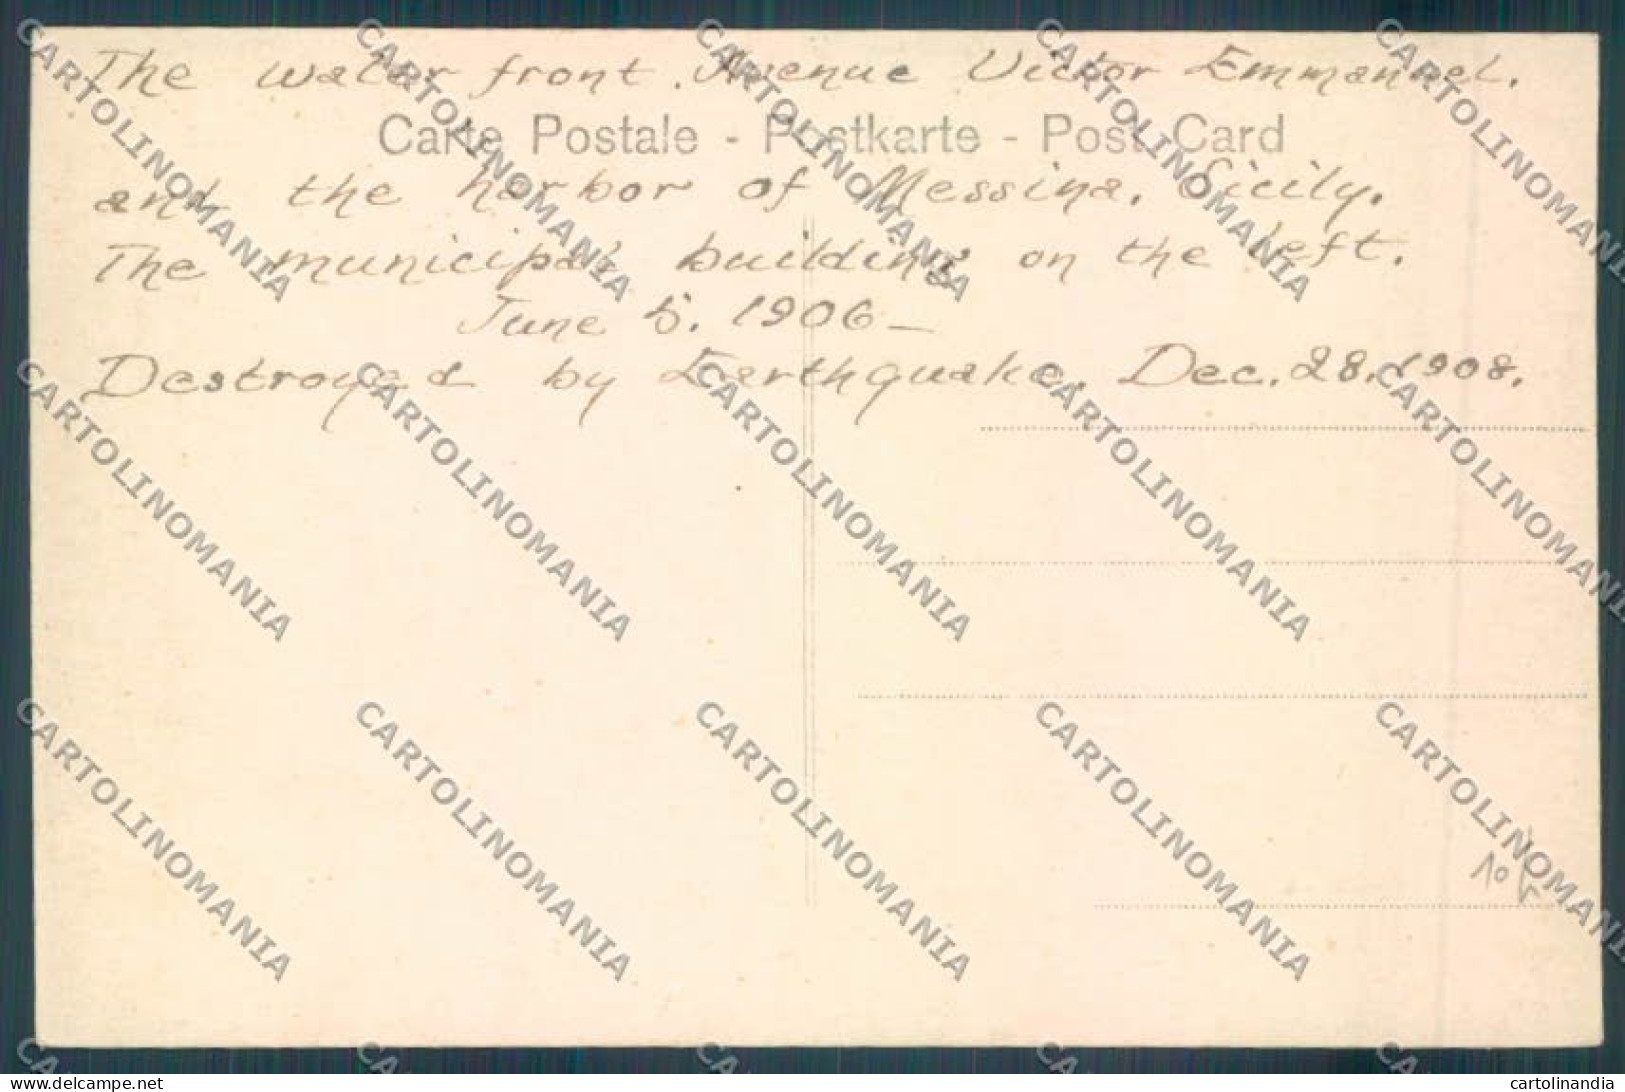 The water front. Avenue Victor Emmanuel.
Carte Postale - Postkarte - Post Card
and the harbor of Messina. Sicily.
The municipal building on the left.
June 5. 1906 —
Destroyed by Earthquake. Dec. 28. 1908.
CARTOLINOMANIA
delcampe.net
cartolinandia